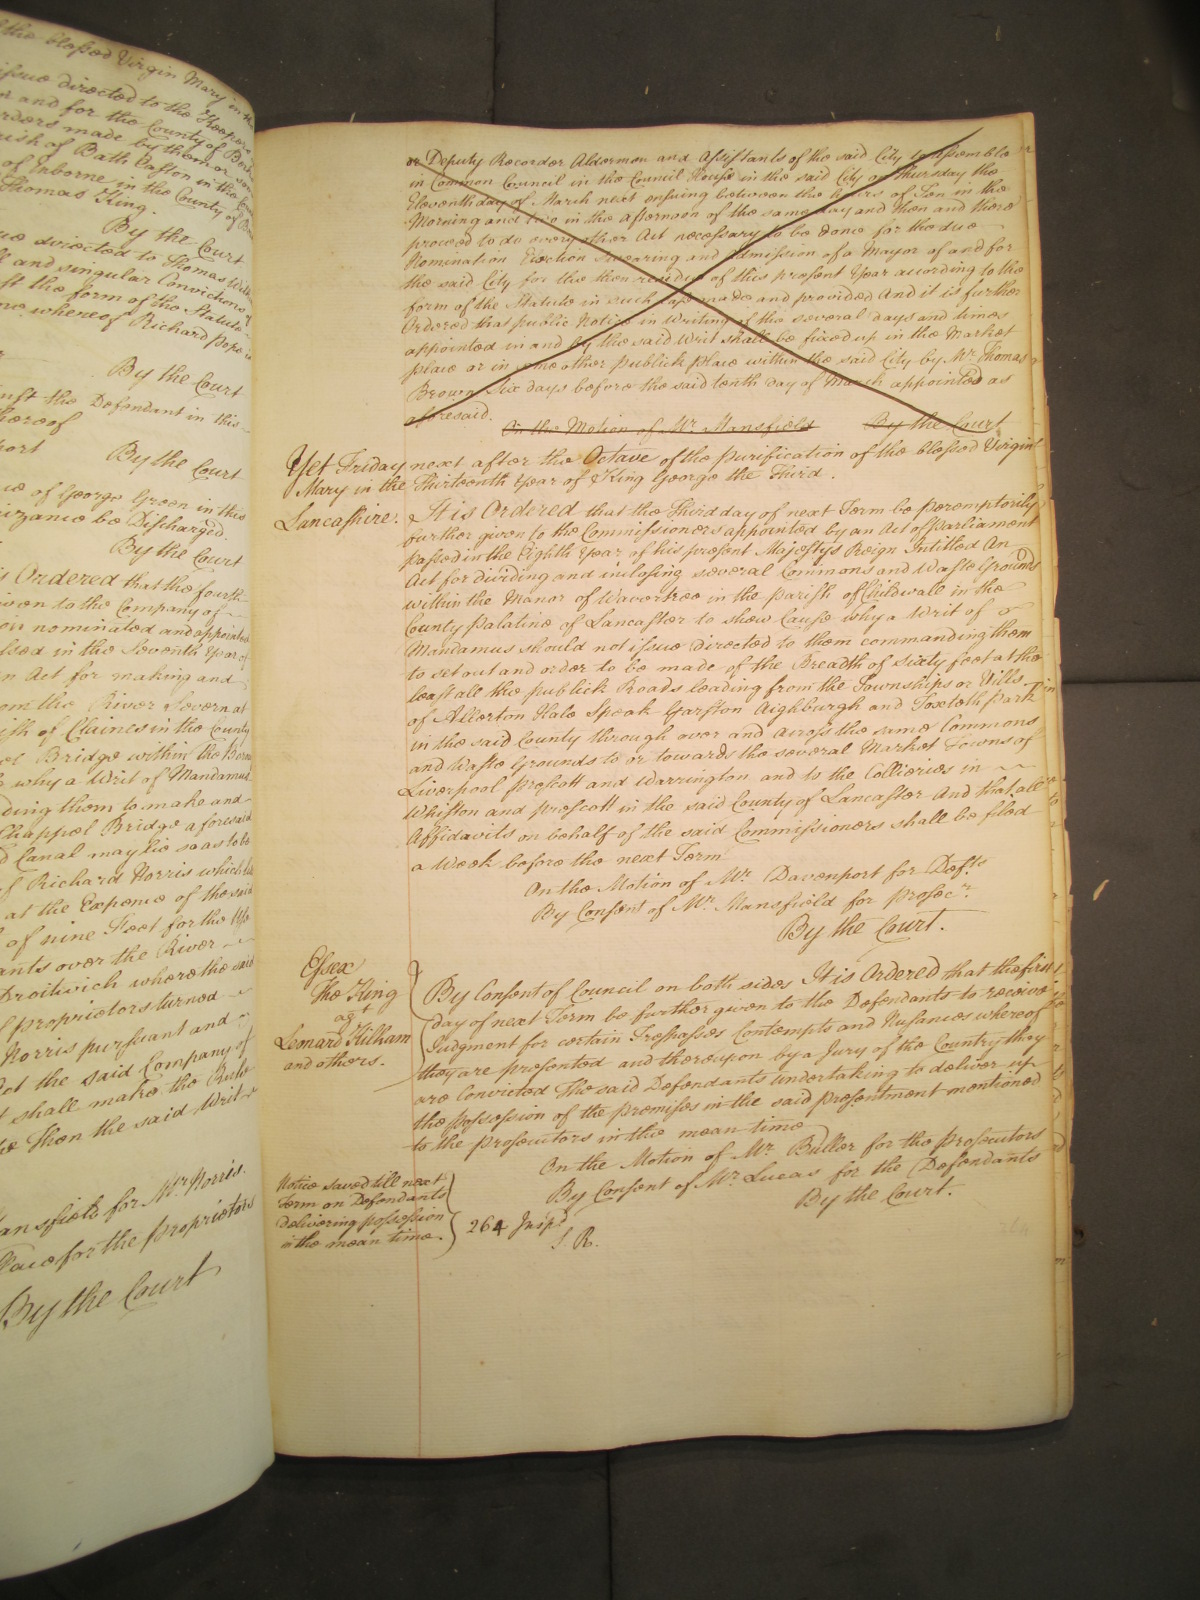 the blessed Virgin Mary in
issue directed to the Keepers
and for the County of
orders made by them or
rish of Bath Easton in the
of Inborne in the County of
Thomas King.
By the Court
directed to Thomas
and singular Convictions of
the form of the Statute
whereof Richard Pope
By the Court
the Defendant in this
hereof
By the Court
of George Green in this
be Discharged.
By the Court
is Ordered that the fourth
given to the Company of
nominated and appointed
in the Seventh Year of
Act for making and
from the River Severn at
of Claines in the County
Bridge within the
why a Writ of Mandamus
them to make and
Chappel Bridge aforesaid
Canal may lie so as to be
of Richard Norris which
at the Expence of the said
of nine Feet for the Use
over the River
Droitwich where the said
proprietors turned
Norris pursuant and
the said Company of
shall make the Rule
Then the said Writ
for Mr. Norris.
for the proprietors
By the Court
or Deputy Recorder Aldermen and Assistants of the said City to assemble
in Common Council in the Council House in the said City on Thursday the
Eleventh day of March next ensuing between the hours of Ten in the
Morning and two in the afternoon of the same day and then and there
proceed to do every other Act necessary to be done for the due
Nomination Election Swearing and Admission of a Mayor of and for
the said City for the then residue of this present Year according to the
form of the Statute in such case made and provided And it is further
Ordered that public Notice in Writing of the several days and times
appointed in and by the said Writ shall be fixed up in the Market
place or in some other publick place within the said City by Mr. Thomas
Brown Six days before the said tenth day of March appointed as
aforesaid.
On the Motion of Mr. Mansfield By the Court
Yet Friday next after the Octave of the Purification of the blessed Virgin
Mary in the Thirteenth Year of King George the Third.
Lancashire. It is Ordered that the Third day of next Term be peremptorily
further given to the Commissioners appointed by an Act of Parliament
passed in the Eighth Year of his present Majestys Reign Intitled An
Act for dividing and inclosing several Commons and Waste Grounds
within the Manor of Wavertree in the parish of Childwall in the
County Palatine of Lancaster to shew Cause why a Writ of
Mandamus should not issue directed to them commanding them
to set out and order to be made of the Breadth of sixty feet at the
least all the publick Roads leading from the Townships or Vills
of Allerton Hale Speak Garston Aighburgh and Toxteth Park
in the said County through over and across the same Commons
and Waste Grounds to or towards the several Market Towns of
Liverpool Prescott and Warrington and to the Collieries in
Whiston and Prescott in the said County of Lancaster And that all
Affidavits on behalf of the said Commissioners shall be filed
a Week before the next Term
On the Motion of Mr. Davenport for Defts
By Consent of Mr. Mansfield for Prosecr.
By the Court.
Essex
The King
agt
Leonard Kilham
and others.
By Consent of Council on both sides It is Ordered that the first
day of next Term be further given to the Defendants to receive
Judgment for certain Trespasses Contempts and Nusances whereof
they are presented and thereupon by a Jury of the Country they
are Convicted The said Defendants undertaking to deliver up
the possession of the premises in the said presentment mentioned
to the prosecutors in the mean time
On the Motion of Mr. Buller for the Prosecutors
By Consent of Mr. Lucas for the Defendants
By the Court.
Notice saved till next
Term on Defendants
delivering possession
in the mean time.
264 Insps
J. R.